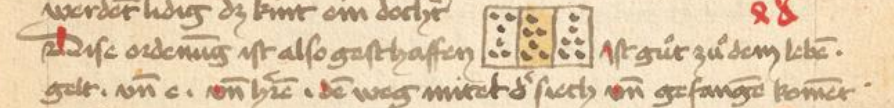 werdet lidig dz kint ein docht̄
Dise ordenūg ist also geschaffen ist gůt zů dem lebē ·
gelt · vn̄ e · vn̄ h̄re · dē weg mitel d' siech vn̄ gefangē komēt